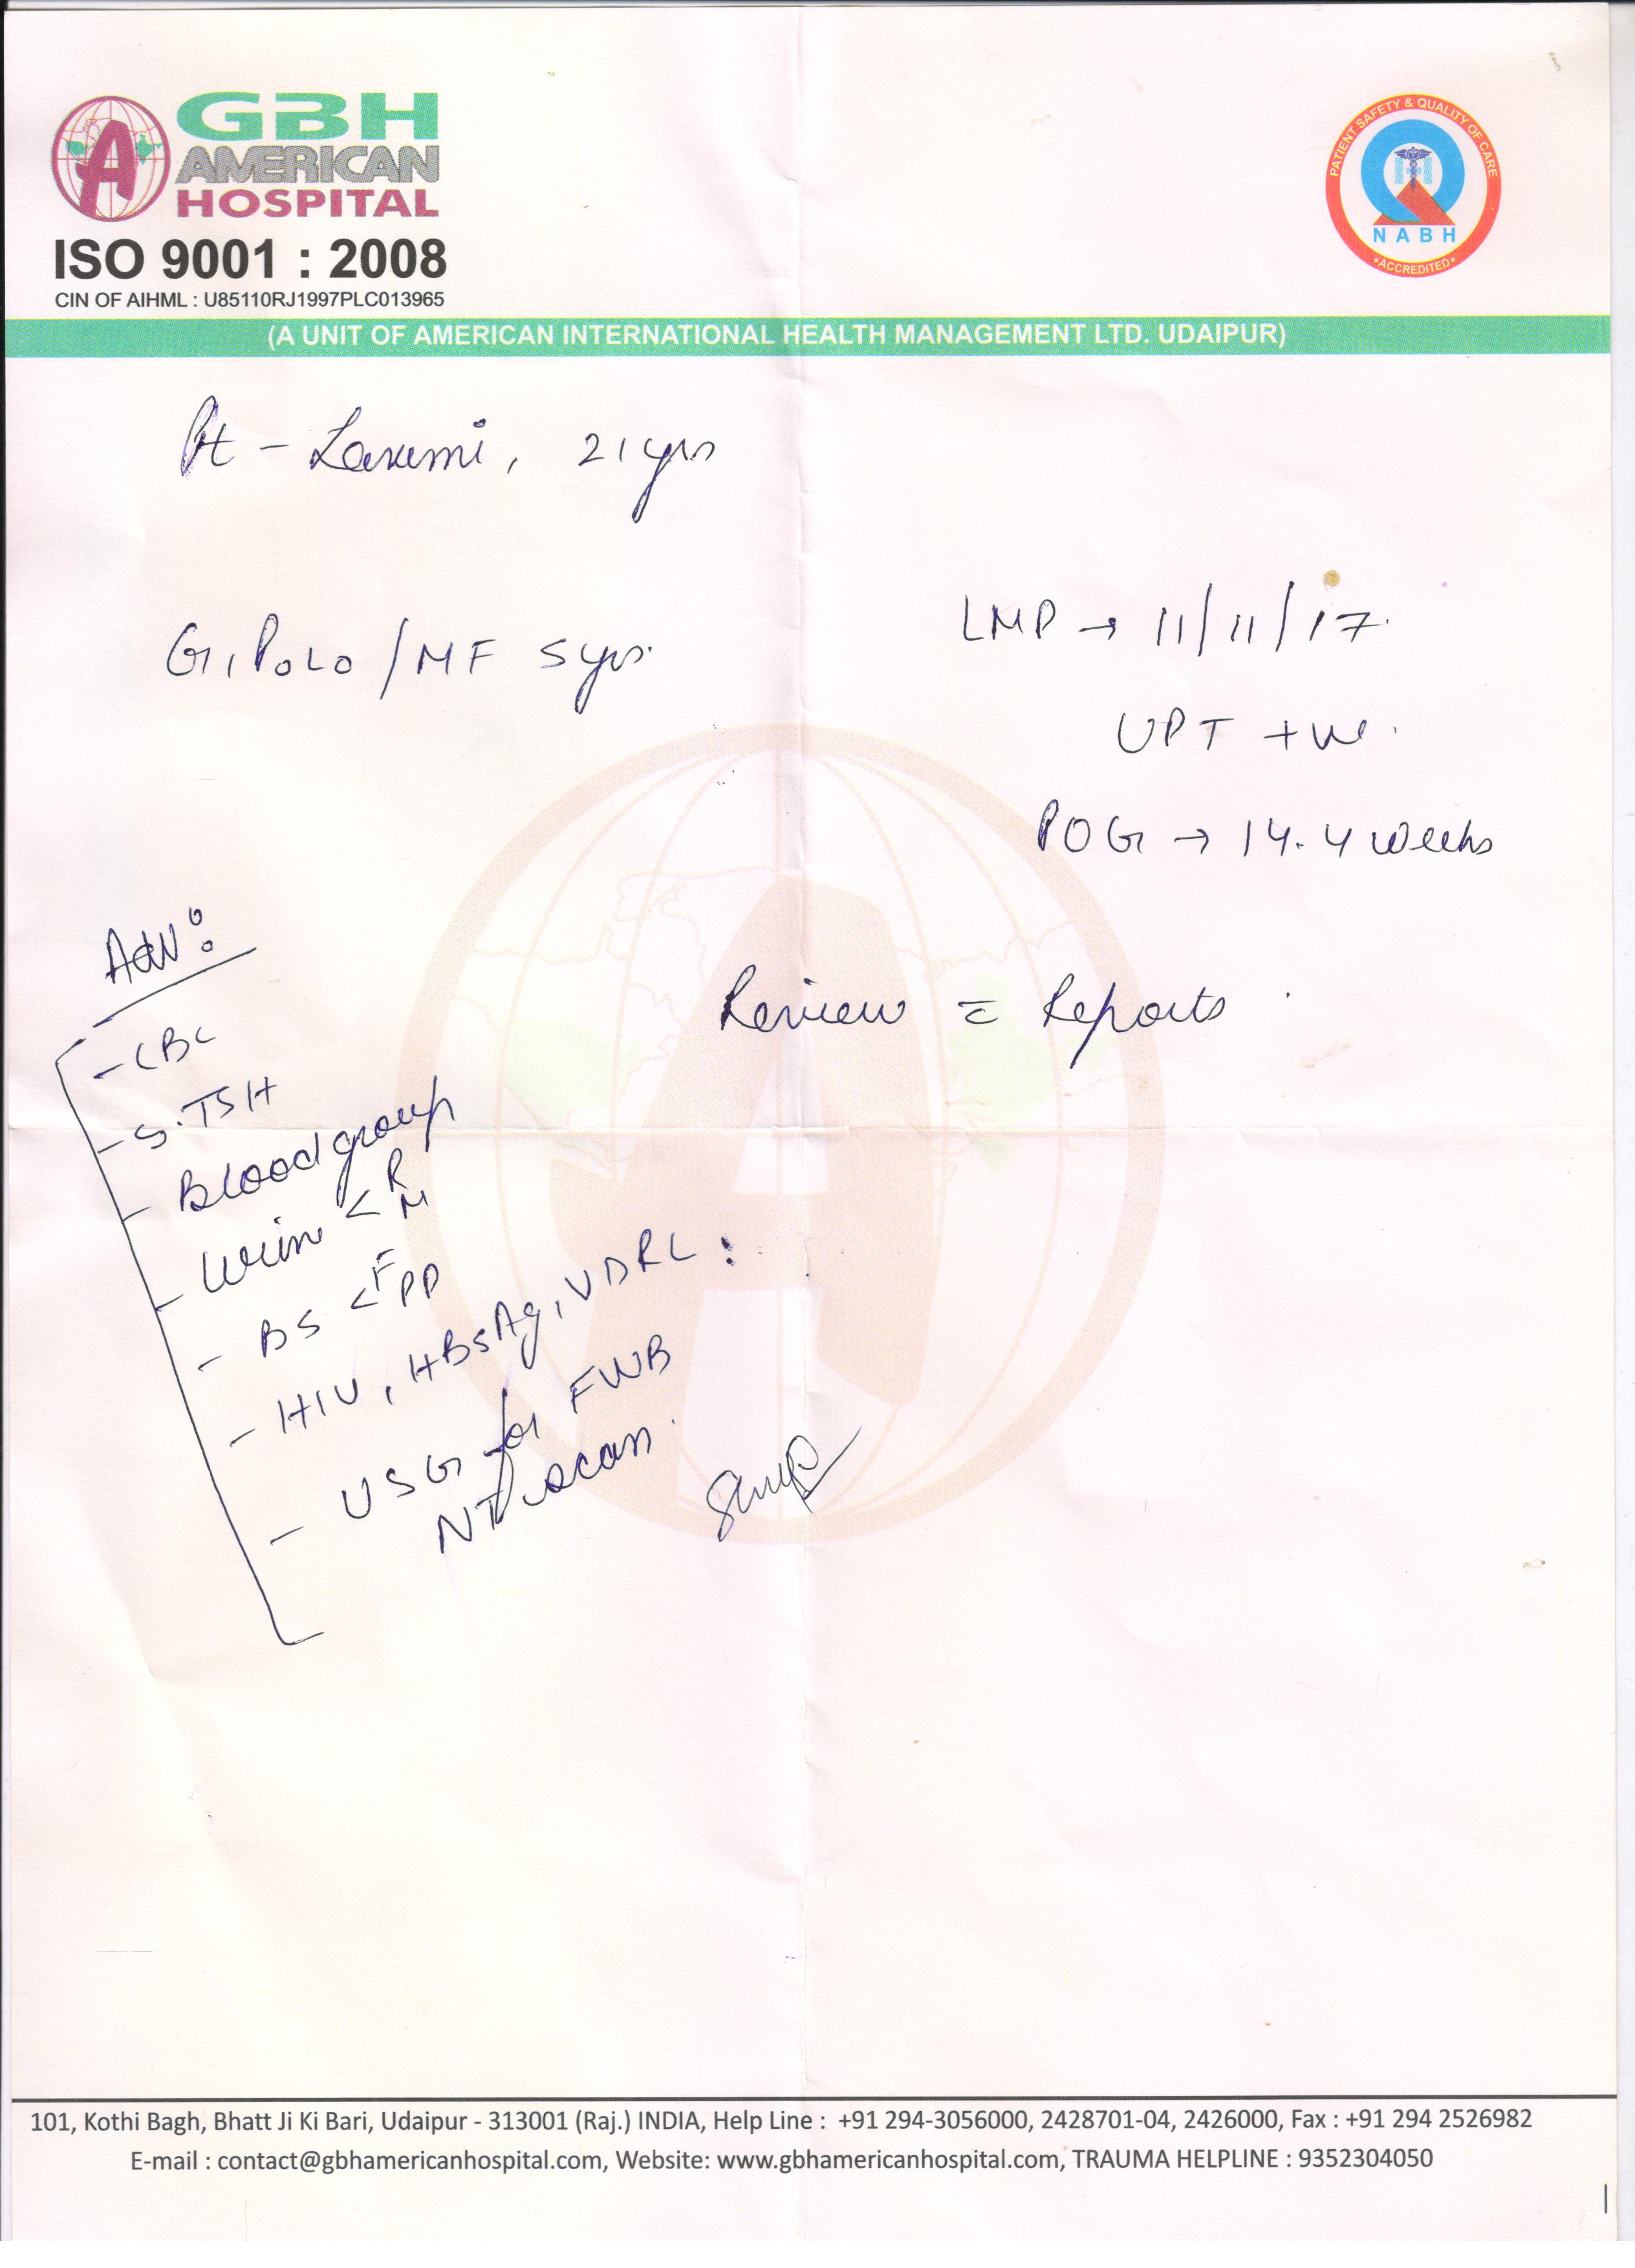 GBH
AMERICAN
HOSPITAL
ISO 9001 : 2008
CIN OF AIHML : U85110RJ1997PLC013965
PATIENT SAFETY & QUALITY OF CARE
NABH
*ACCREDITED*
(A UNIT OF AMERICAN INTERNATIONAL HEALTH MANAGEMENT LTD. UDAIPUR)
Pt - Laxmi, 21 yrs
LMP → 11/11/17.
G1P0L0 / MF 5 yrs.
UPT +ve.
POG → 14.4 weeks
Adv:
Review = Reports.
- CBC
- S.TSH
- Blood group
- Urine < R M
- BS < F PP
- HIV, HBsAg, VDRL:
- USG for FWB
NT scan.
101, Kothi Bagh, Bhatt Ji Ki Bari, Udaipur - 313001 (Raj.) INDIA, Help Line : +91 294-3056000, 2428701-04, 2426000, Fax : +91 294 2526982
E-mail : contact@gbhamericanhospital.com, Website: www.gbhamericanhospital.com, TRAUMA HELPLINE : 9352304050